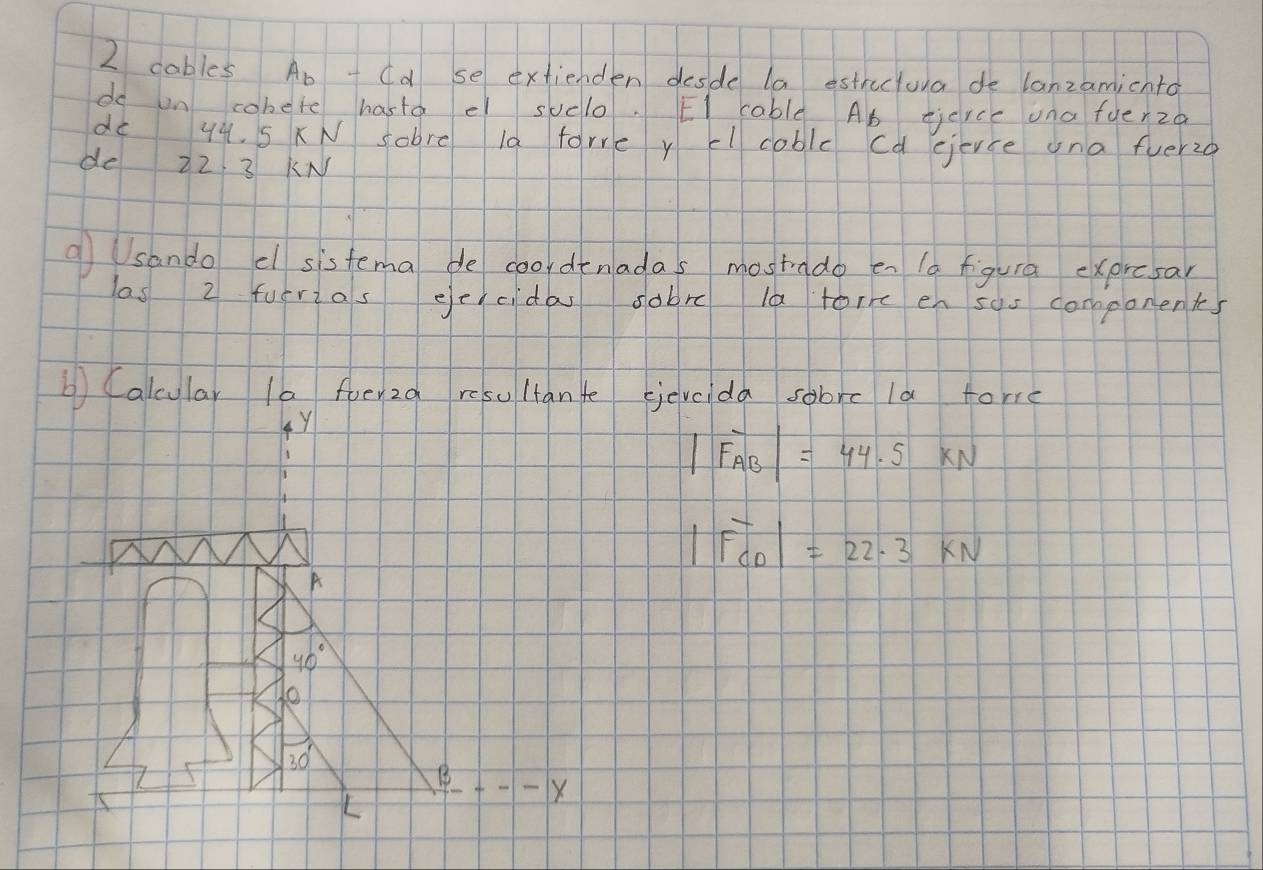 2 cables Ab - Cd se extienden desde la estructura de lanzamiento
de un cohete hasta el suelo. El cable Ab ejerce una fuerza
de 44.5 KN sobre la torre y el cable Cd ejerce una fuerza
de 22.3 KN
a) Usando el sistema de coordenadas mostrado en la figura expresar
las 2 fuerzas ejercidas sobre la torre en sus componentes
b) Calcular la fuerza resultante ejercida sobre la torre
Y
|FAB| = 44.5 KN
|FCD| = 22.3 KN
A
40°
D
30
B
X
C